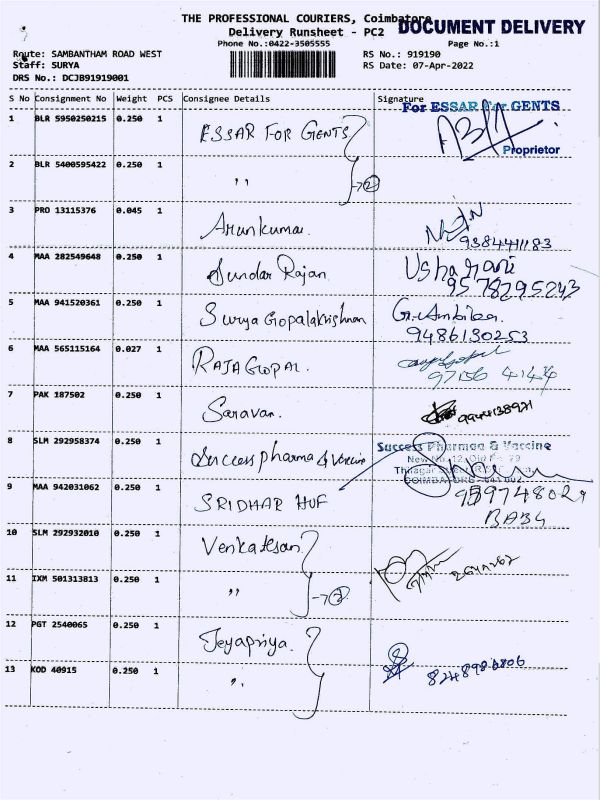 THE PROFESSIONAL COURIERS, Coimbatore
DOCUMENT DELIVERY
Delivery Runsheet - PC2
Phone No.:0422-3505555
Page No.:1
Route: SAMBANTHAM ROAD WEST
RS No.: 919190
Staff: SURYA
RS Date: 07-Apr-2022
DRS No.: DCJB91919001
S No Consignment No Weight PCS Consignee Details Signature
For ESSAR For GENTS
1 BLR 5950250215 0.250 1 ESSAR FOR GENTS
Proprietor
2 BLR 5400595422 0.250 1 " →②
3 PRO 13115376 0.045 1 Arunkumar.
9384441183
4 MAA 282549648 0.250 1 Sundar Rajan. Usharani
9578295243
5 MAA 941520361 0.250 1 Surya Gopalakrishnan G. Ambika
9486130253
6 MAA 565115164 0.027 1 RAJA GOPAL.
97156 41424
7 PAK 187502 0.250 1 Saravan.
8 SLM 292958374 0.250 1 Success pharma & Vaccine Success Pharmaa & Vaccine
New No. 12, Old No. 79
COIMBATORE - 641 002
9 MAA 942031062 0.250 1 SRIDHAR HUF
10 SLM 292932010 0.250 1 Venkatesan
11 IXM 501313813 0.250 1 " →②
12 PGT 2540065 0.250 1 Jeyapriya.
13 KOD 40915 0.250 1 "
8248986806